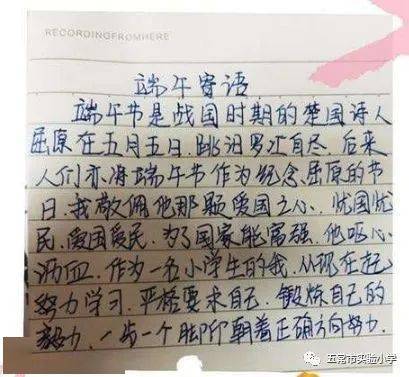 RECORDINGFROMHERE
端午寄语
端午节是战国时期的楚国诗人
屈原在五月五日.跳汨罗江自尽.后来
人们亦将端午节作为纪念屈原的节
日.我敬佩他那颗爱国之心.忧国忧
民.爱国爱民.为了国家能富强.他呕心
沥血.作为一名小学生的我.从现在起
努力学习.严格要求自己.锻炼自己的
毅力.一步一个脚印朝着正确方向努力.
五常市实验小学